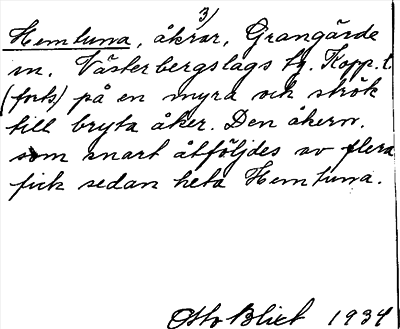 3)
Hemluna, åkrar, Grangärde
sn. Västerbergslags tg. Kopp. l.
(forts) på en myra och strök
till bryta åker. Den åkern.
som snart åtföljdes av flera
fick sedan heta Hemluna.
Otto Blixt 1934